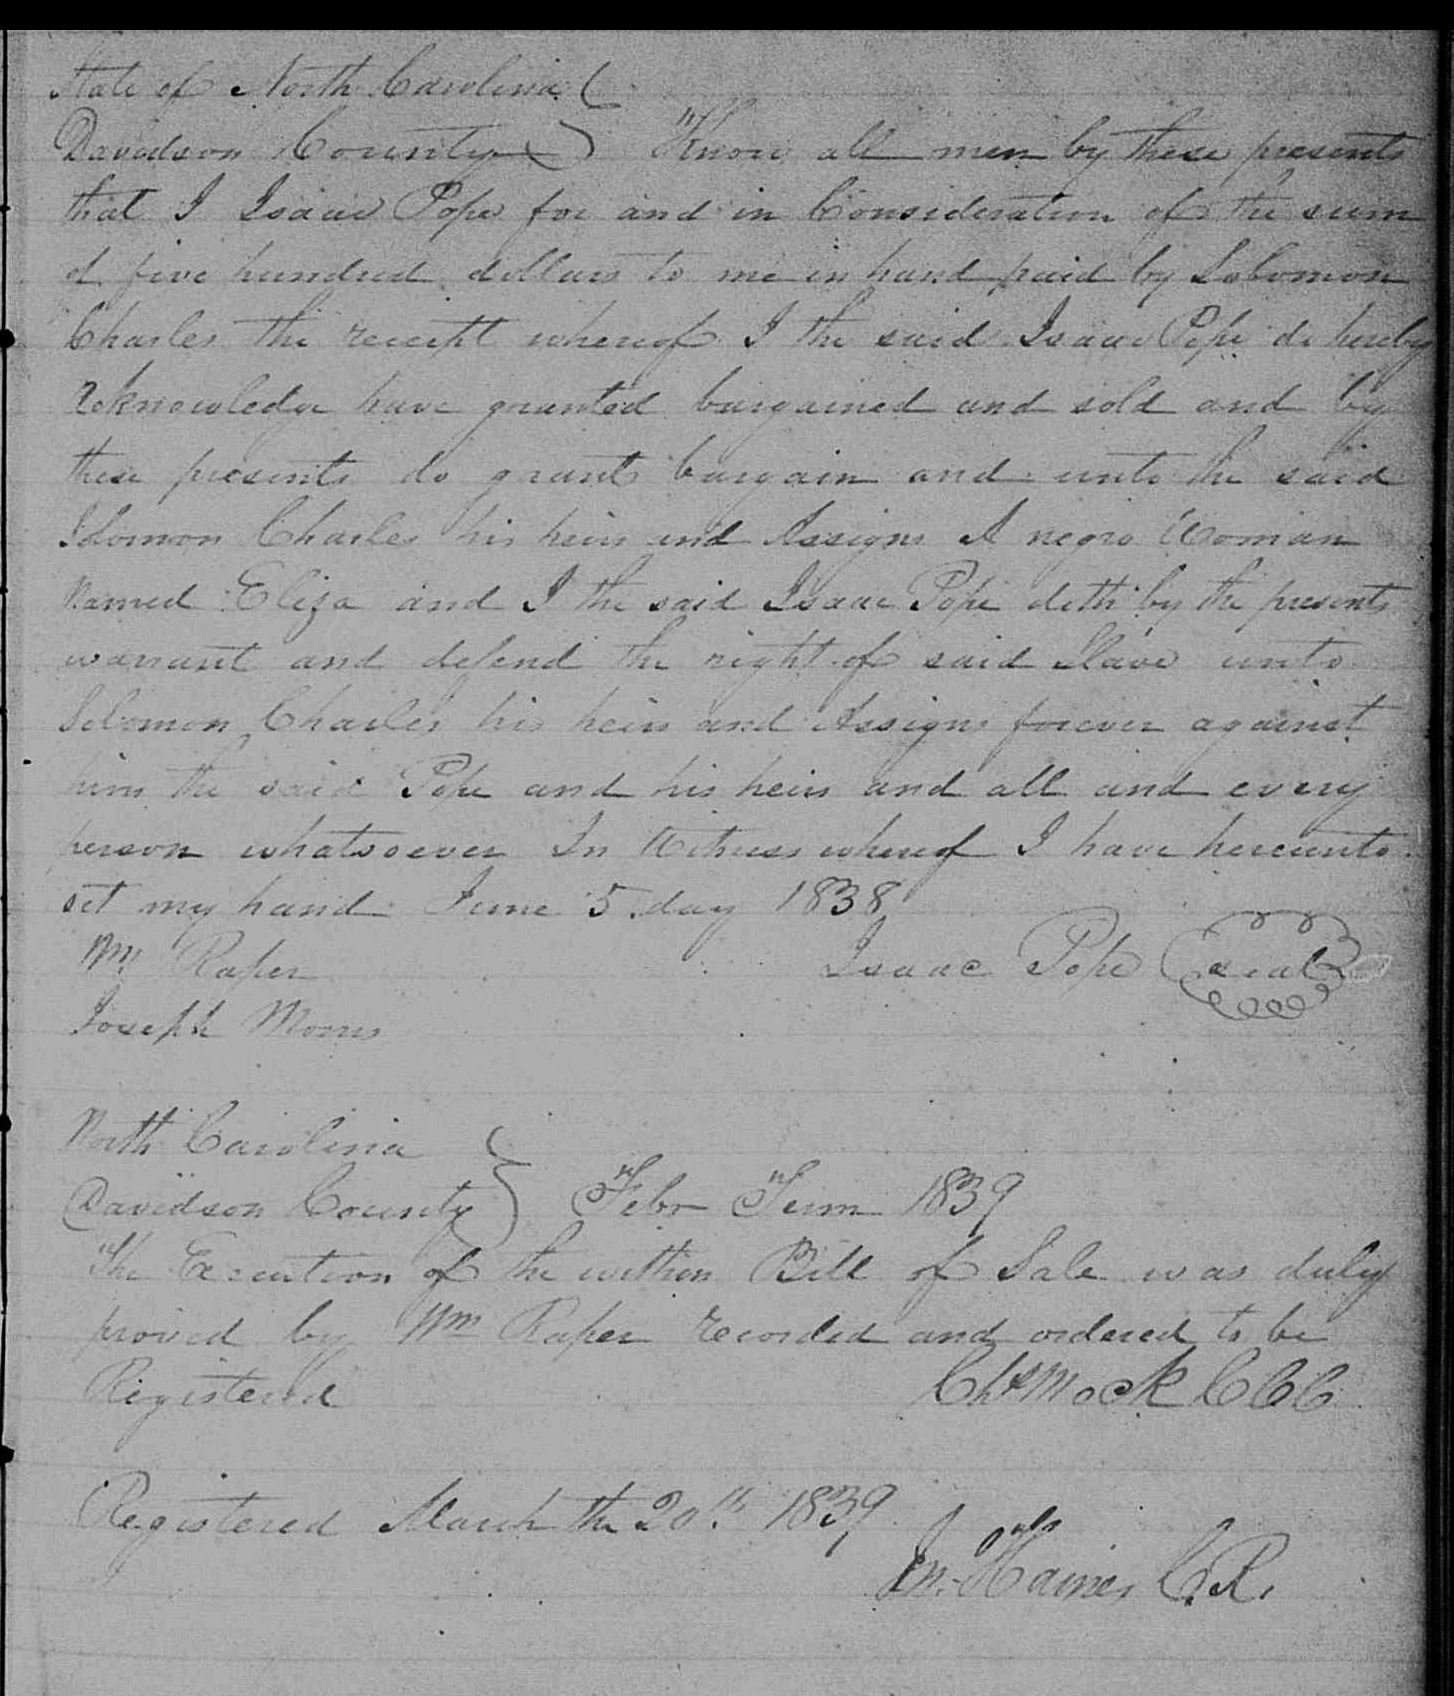 State of North Carolina
Davidson County } Know all men by these presents
that I Isaac Pope for and in Consideration of the sum
of five hundred dollars to me in hand paid by Solomon
Charles the receipt whereof I the said Isaac Pope do hereby
acknowledge have granted bargained and sold and by
these presents do grant bargain and unto the said
Solomon Charles his heirs and Assigns A negro Woman
Named Eliza and I the said Isaac Pope doth by the presents
warrant and defend the right of said Slave unto
Solomon Charles his heirs and Assigns forever against
him the said Pope and his heirs and all and every
person whatsoever In Witness whereof I have hereunto
set my hand June 5 day 1838
Wm Raper Isaac Pope seal
Joseph Morris
North Carolina
Davidson County } Febr Term 1839
The Execution of the within Bill of Sale was duly
proved by Wm Raper recorded and ordered to be
Registered Chs Mock CCC
Registered March the 20th 1839
Jn. Haines C.R.